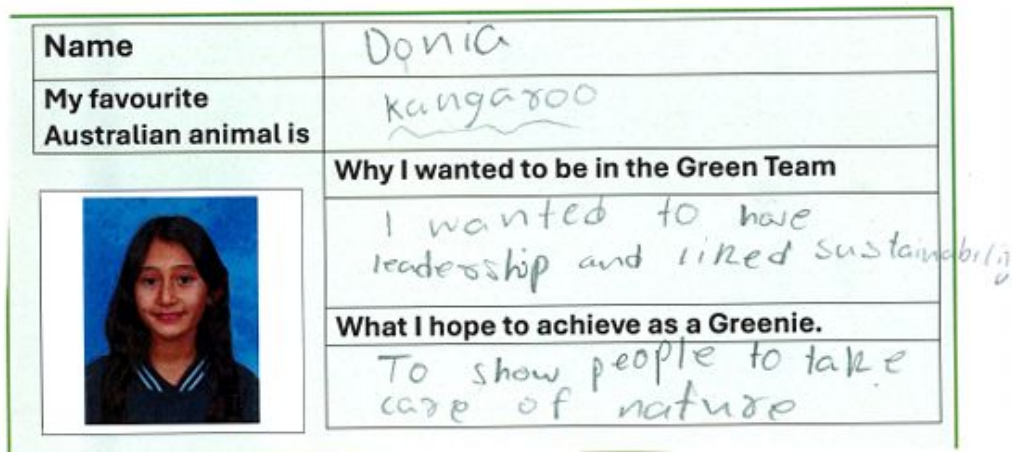 Name
Donia
My favourite
Australian animal is
kangaroo
Why I wanted to be in the Green Team
I wanted to have
leadership and liked sustainability
What I hope to achieve as a Greenie.
To show people to take
care of nature